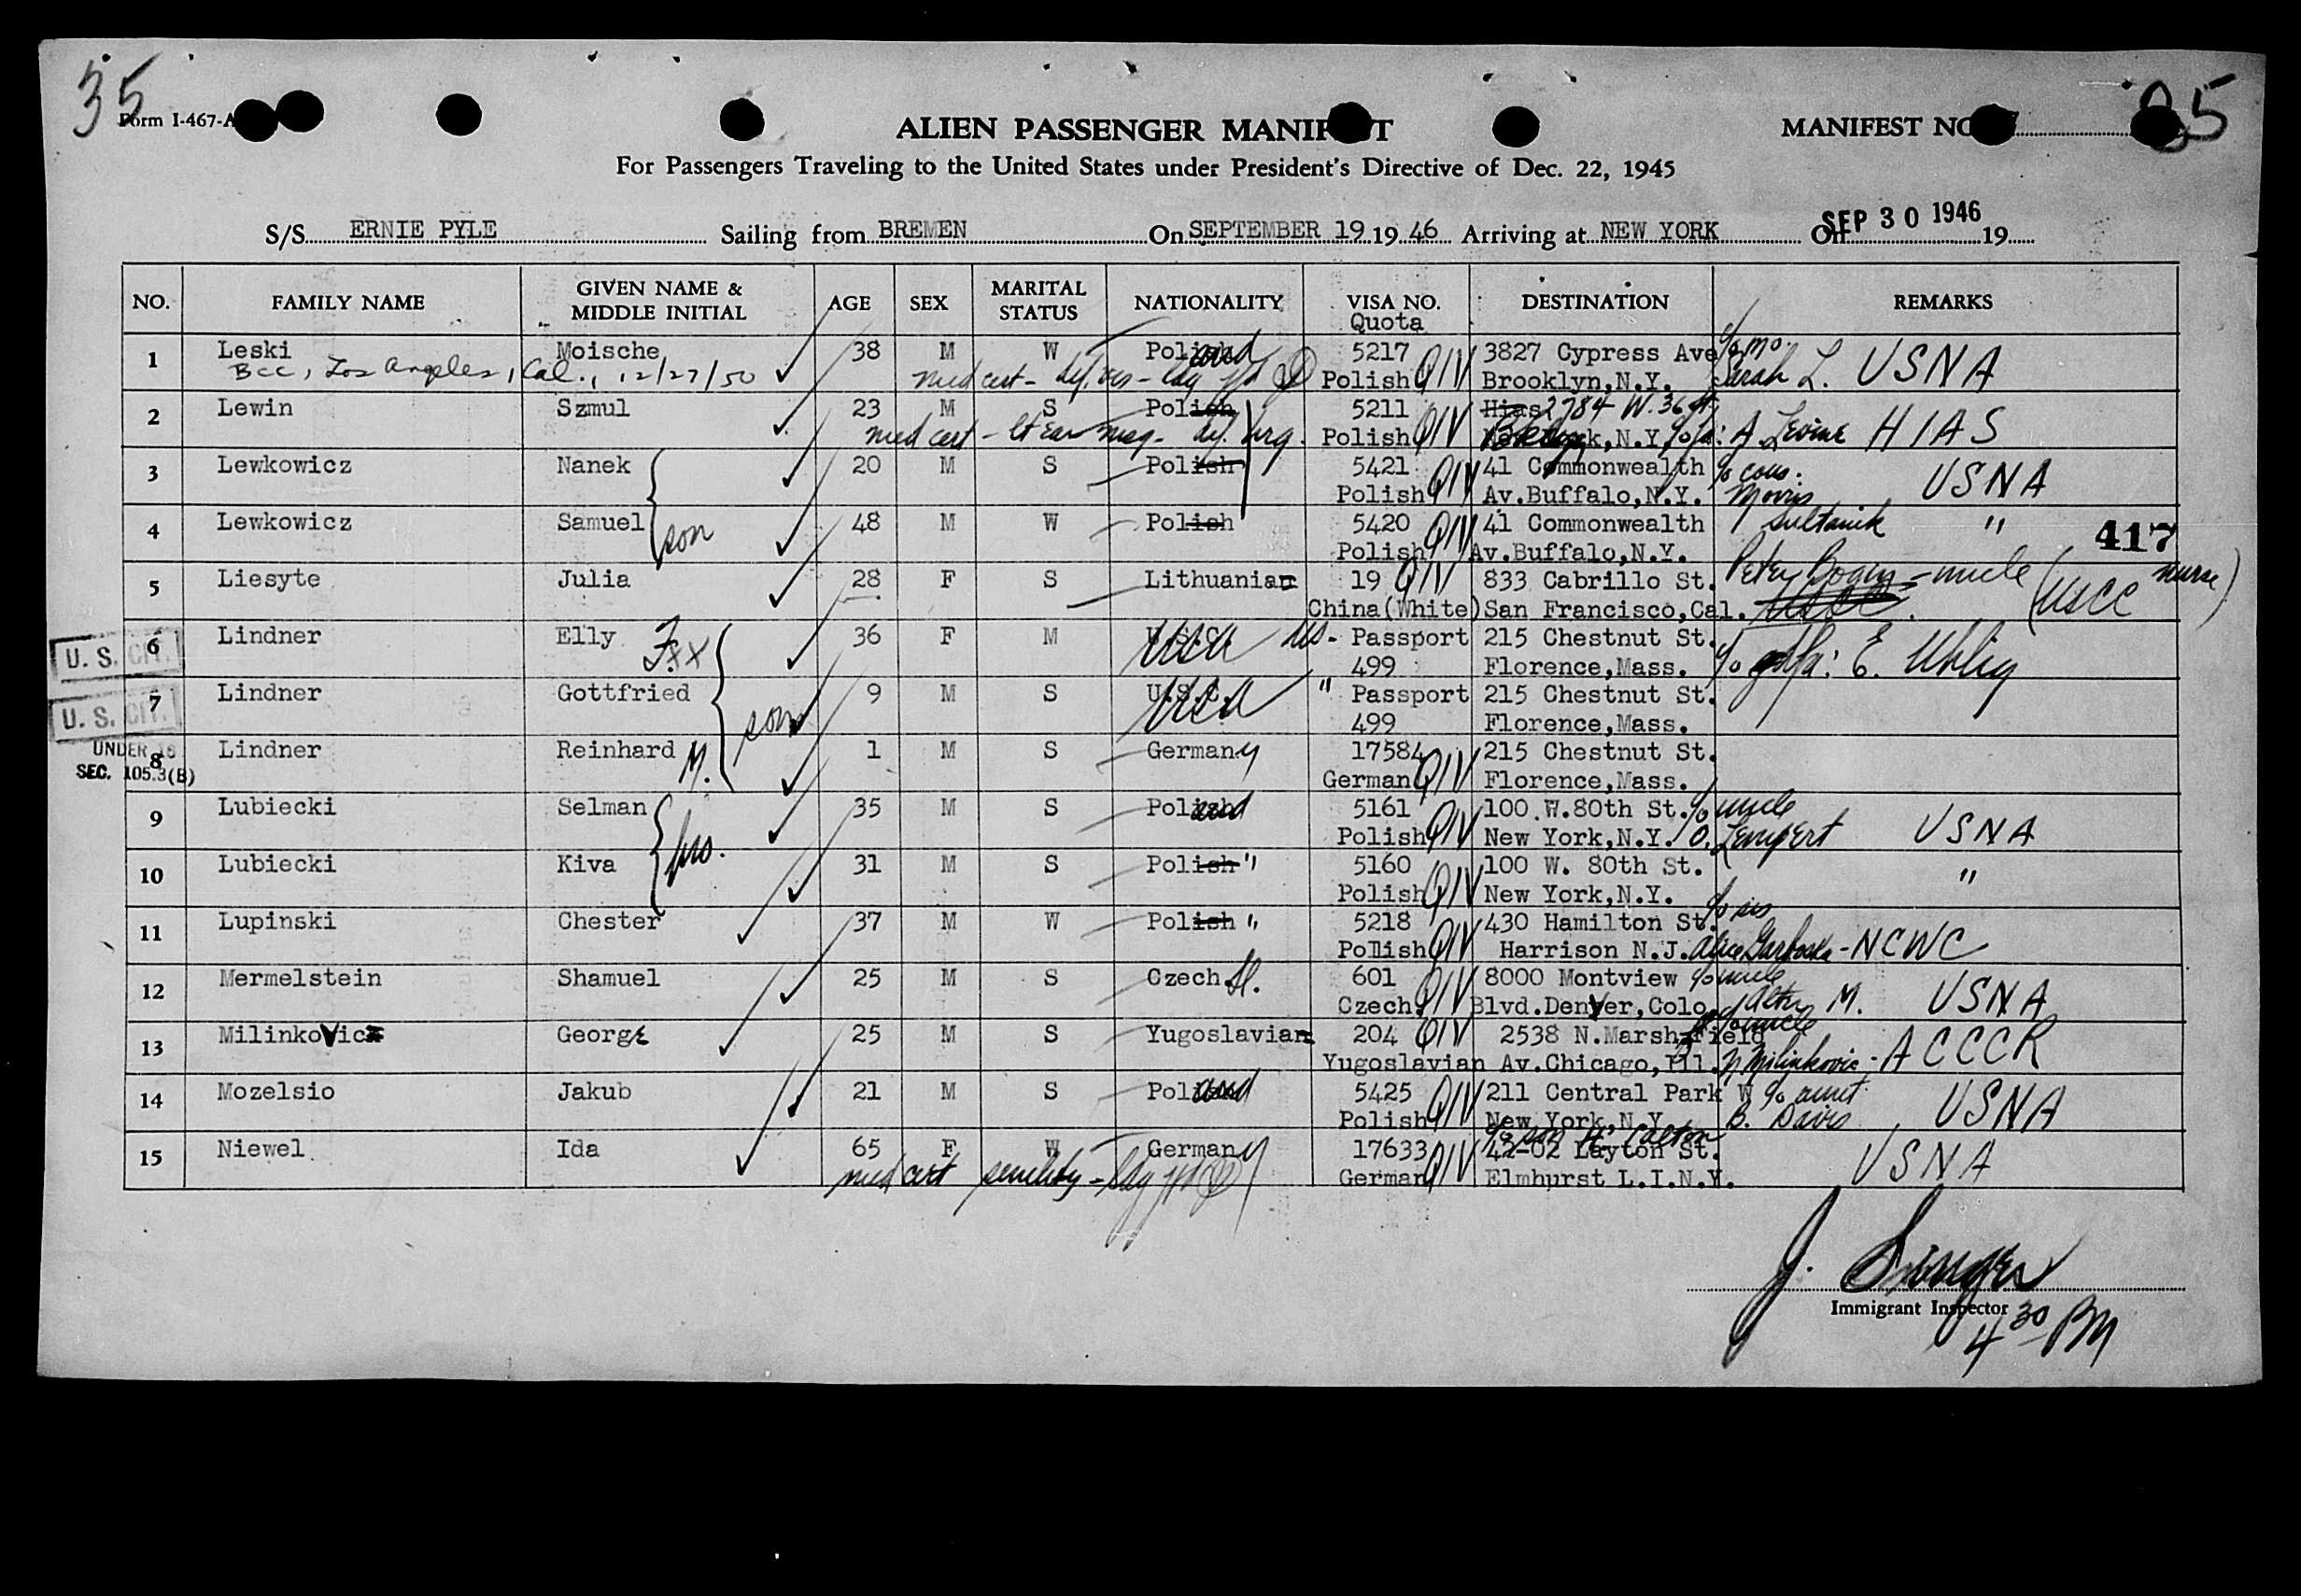 35
35
Form I-467-A
ALIEN PASSENGER MANIF T
MANIFEST NO
For Passengers Traveling to the United States under President's Directive of Dec. 22, 1945
S/S ERNIE PYLE Sailing from BREMEN On SEPTEMBER 19 19 46 Arriving at NEW YORK On SEP 30 1946 19
NO. FAMILY NAME GIVEN NAME & MIDDLE INITIAL AGE SEX MARITAL STATUS NATIONALITY VISA NO. Quota DESTINATION REMARKS
1 Leski Moische 38 M W Poland 5217 QIV 3827 Cypress Ave c/o mo.
BCC, Los Angeles, Cal., 12/27/50 med cert - Polish Brooklyn, N.Y. Sarah L. USNA
2 Lewin Szmul 23 M S Polish 5211 QIV Hias 2784 W. 36 St
med cert - Polish N.Y. A. Levine HIAS
3 Lewkowicz Nanek 20 M S Polish 5421 QIV 41 Commonwealth c/o cous.
Polish Av.Buffalo,N.Y. Morris USNA
4 Lewkowicz Samuel son 48 M W Polish 5420 QIV 41 Commonwealth Sultanik "
417
Polish Av.Buffalo,N.Y.
5 Liesyte Julia 28 F S Lithuanian 19 QIV 833 Cabrillo St. Peter - uncle (USCC nurse)
China(White) San Francisco,Cal. USCC
U. S. CIT.
6 Lindner Elly 36 F M USA US- Passport 215 Chestnut St.
499 Florence,Mass. c/o E. Uhlig
U. S. CIT.
7 Lindner Gottfried son 9 M S U.S.C. USA " Passport 215 Chestnut St.
499 Florence,Mass.
UNDER 16
SEC. 105.3(B)
8 Lindner Reinhard M. 1 M S Germany 17584 215 Chestnut St.
German QIV Florence,Mass.
9 Lubiecki Selman 35 M S Poland 5161 100 W.80th St. c/o uncle
Polish QIV New York,N.Y. O. Lempert USNA
10 Lubiecki Kiva bros. 31 M S Polish " 5160 100 W. 80th St. "
Polish QIV New York,N.Y.
11 Lupinski Chester 37 M W Polish " 5218 430 Hamilton St. c/o sis
Polish QIV Harrison N.J. Alice - NCWC
12 Mermelstein Shamuel 25 M S Czech Sl. 601 8000 Montview c/o uncle
Czech QIV Blvd.Denver,Colo. M. USNA
13 Milinkovic George 25 M S Yugoslavian 204 QIV 2538 N.Marshfield c/o uncle
Yugoslavian Av.Chicago,Ill. N Milinkovic - ACCCR
14 Mozelsio Jakub 21 M S Poland 5425 211 Central Park W c/o aunt
Polish QIV New York,N.Y. B. Davis USNA
15 Niewel Ida 65 F W Germany 17633 c/o son H. Calton 42-02 Layton St. USNA
med cert senility - German QIV Elmhurst L.I.N.Y.
J. Singer
Immigrant Inspector
4 30 PM